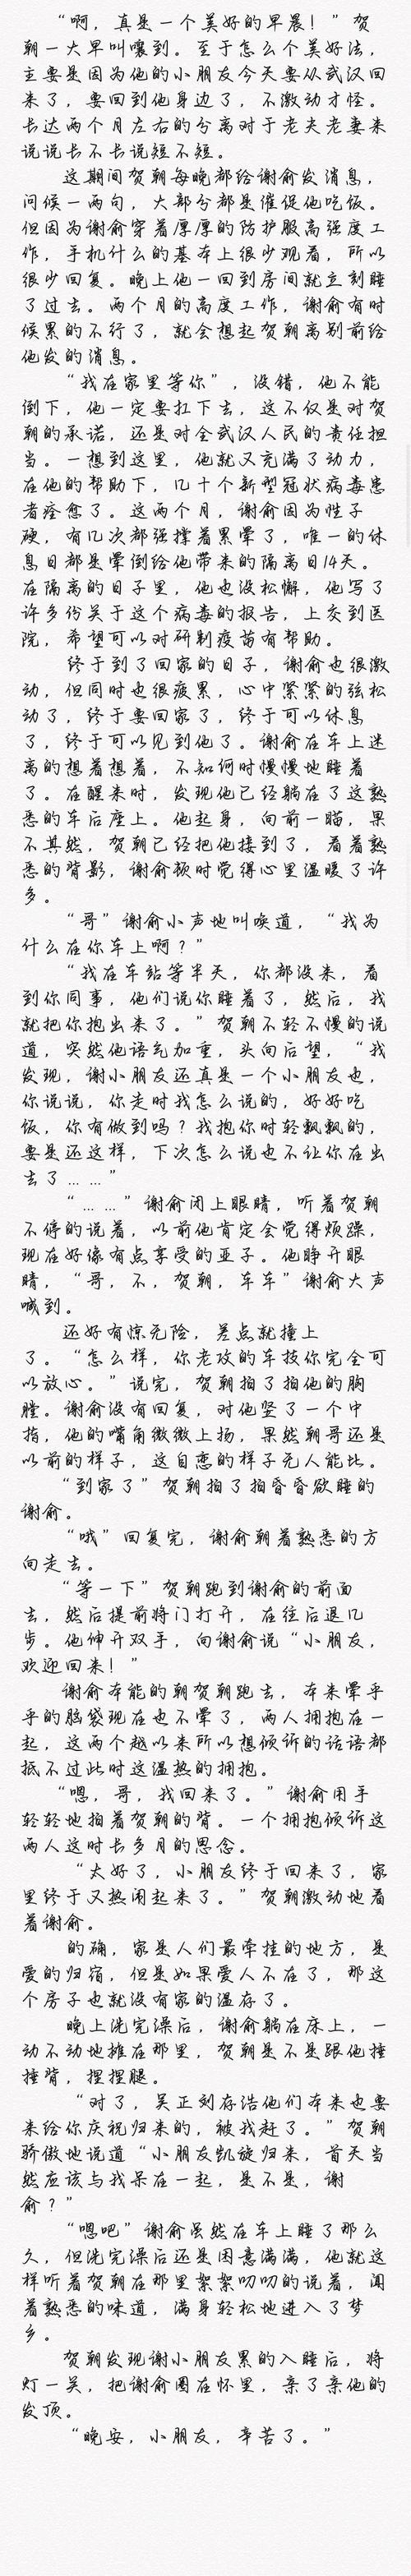 “啊，真是一个美好的早晨！”贺
朝一大早叫嚷到。至于怎么个美好法，
主要是因为他的小朋友今天要从武汉回
来了，要回到他身边了，不激动才怪。
长达两个月左右的分离对于老夫老妻来
说说长不长说短不短。
这期间贺朝每晚都给谢俞发消息，
问候一两句，大部分都是催促他吃饭。
但因为谢俞穿着厚厚的防护服高强度工
作，手机什么的基本上很少观看，所以
很少回复。晚上他一回到房间就立刻睡
了过去。两个月的高度工作，谢俞有时
候累的不行了，就会想起贺朝离别前给
他发的消息。
“我在家里等你”，没错，他不能
倒下，他一定要扛下去，这不仅是对贺
朝的承诺，还是对全武汉人民的责任担
当。一想到这里，他就又充满了动力，
在他的帮助下，几十个新型冠状病毒患
者痊愈了。这两个月，谢俞因为性子
硬，有几次都强撑着累晕了，唯一的休
息日都是晕倒给他带来的隔离日14天。
在隔离的日子里，他也没松懈，他写了
许多份关于这个病毒的报告，上交到医
院，希望可以对研制疫苗有帮助。
终于到了回家的日子，谢俞也很激
动，但同时也很疲累，心中紧紧的弦松
动了，终于要回家了，终于可以休息
了，终于可以见到他了。谢俞在车上迷
离的想着想着，不知何时慢慢地睡着
了。在醒来时，发现他已经躺在了这熟
悉的车后座上。他起身，向前一瞄，果
不其然，贺朝已经把他接到了，看着熟
悉的背影，谢俞顿时觉得心里温暖了许
多。
“哥”谢俞小声地叫唤道，“我为
什么在你车上啊？”
“我在车站等半天，你都没来，看
到你同事，他们说你睡着了，然后，我
就把你抱出来了。”贺朝不轻不慢的说
道，突然他语气加重，头向后望，“我
发现，谢小朋友还真是一个小朋友也，
你说说，你走时我怎么说的，好好吃
饭，你有做到吗？我抱你时轻飘飘的，
要是还这样，下次怎么说也不让你在出
去了……”
“……”谢俞闭上眼睛，听着贺朝
不停的说着，以前他肯定会觉得烦躁，
现在好像有点享受的亚子。他睁开眼
睛，“哥，不，贺朝，车车”谢俞大声
喊到。
还好有惊无险，差点就撞上
了。“怎么样，你老攻的车技你完全可
以放心。”说完，贺朝拍了拍他的胸
膛。谢俞没有回复，对他竖了一个中
指，他的嘴角微微上扬，果然朝哥还是
以前的样子，这自恋的样子无人能比。
“到家了”贺朝拍了拍昏昏欲睡的
谢俞。
“哦”回复完，谢俞朝着熟悉的方
向走去。
“等一下”贺朝跑到谢俞的前面
去，然后提前将门打开，在往后退几
步。他伸开双手，向谢俞说“小朋友，
欢迎回来！”
谢俞本能的朝贺朝跑去，本来晕乎
乎的脑袋现在也不晕了，两人拥抱在一
起，这两个越以来所以想倾诉的话语都
抵不过此时这温热的拥抱。
“嗯，哥，我回来了。”谢俞用手
轻轻地拍着贺朝的背。一个拥抱倾诉这
两人这时长多月的思念。
“太好了，小朋友终于回来了，家
里终于又热闹起来了。”贺朝激动地看
着谢俞。
的确，家是人们最牵挂的地方，是
爱的归宿，但是如果爱人不在了，那这
个房子也就没有家的温存了。
晚上洗完澡后，谢俞躺在床上，一
动不动地摊在那里，贺朝是不是跟他捶
捶背，捏捏腿。
“对了，吴正刘存浩他们本来也要
来给你庆祝归来的，被我赶了。”贺朝
骄傲地说道“小朋友凯旋归来，首天当
然应该与我呆在一起，是不是，谢
俞？”
“嗯吧”谢俞虽然在车上睡了那么
久，但洗完澡后还是困意满满，他就这
样听着贺朝在那里絮絮叨叨的说着，闻
着熟悉的味道，满身轻松地进入了梦
乡。
贺朝发现谢小朋友累的入睡后，将
灯一关，把谢俞圈在怀里，亲了亲他的
发顶。
“晚安，小朋友，辛苦了。”